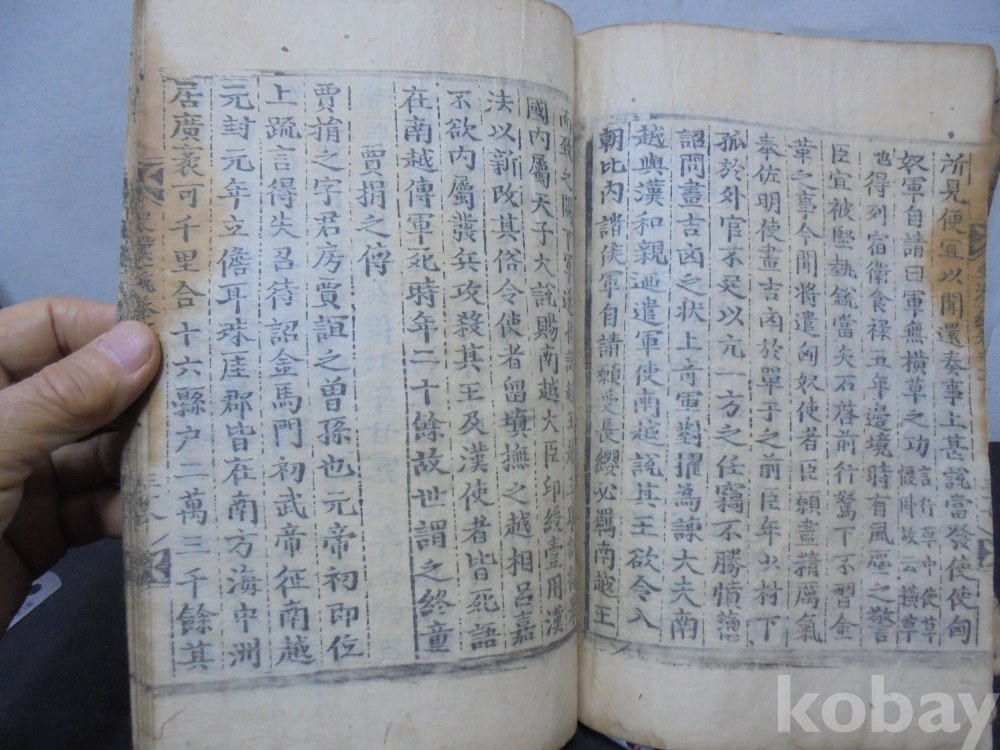 所見便宜以聞還奏事上甚說當發使使匈
奴軍自請曰軍無橫草之功言行草中使草偃臥故云橫草
也得列宿衛食祿五年邊境時有風塵之警
臣宜被堅執銳當矢石啓前行駑下不習金
革之事今聞將遣匈奴使者臣願盡精厲氣
奉佐明使畫吉凶於單于之前臣年少材下
孤於外官不足以亢一方之任竊不勝憤懣
詔問畫吉凶之狀上奇軍對擢為諫大夫南
越與漢和親迺遣軍使南越說其王欲令入
朝比內諸侯軍自請願受長纓必羈南越王
而致之闕下軍遂往說越王越王聽許請
國內屬天子大說賜南越大臣印綬壹用漢
法以新改其俗令使者留塡撫之越相呂嘉
不欲內屬發兵攻殺其王及漢使者皆死語
在南越傳軍死時年二十餘故世謂之終童
賈捐之傳
賈捐之字君房賈誼之曾孫也元帝初即位
上疏言得失召待詔金馬門初武帝征南越
元封元年立儋耳珠厓郡皆在南方海中洲
居廣袤可千里合十六縣戶二萬三千餘其
kobay